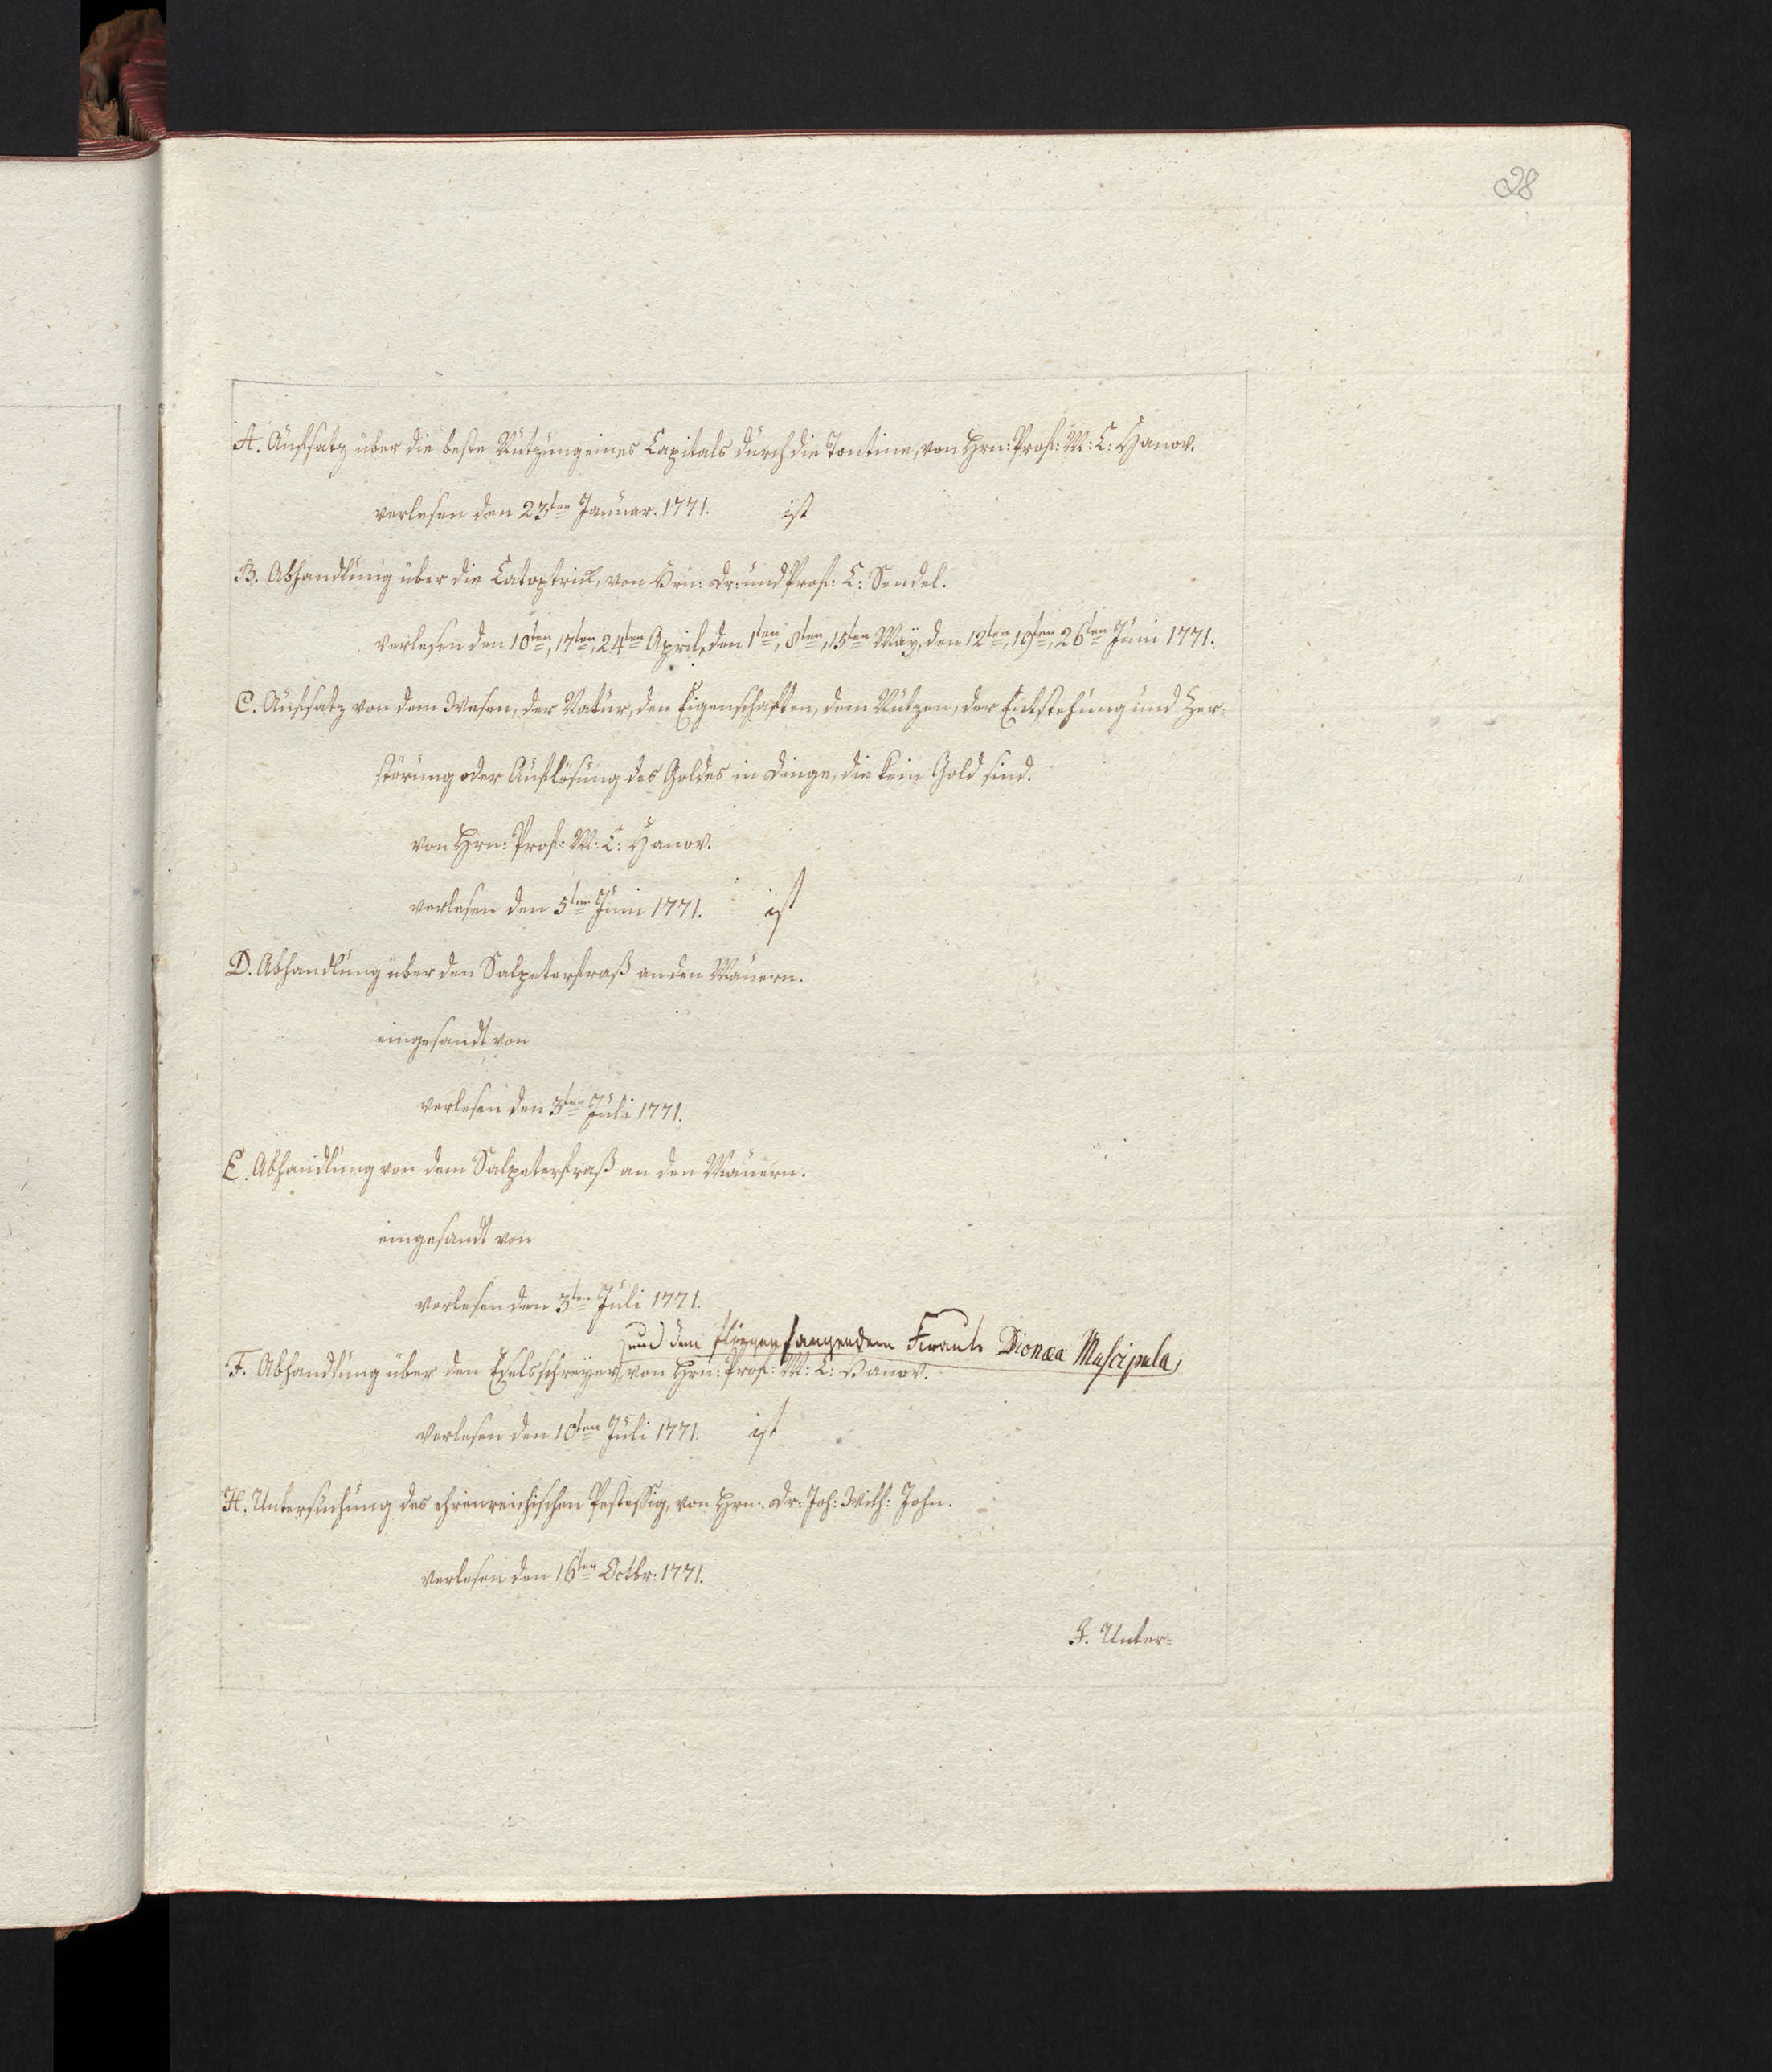 28
A. Aufsatz über die beste Nutzung eines Capitals durch die Tontine, von Hrn: Prof: M: C: Hanov.
verlesen den 23ten Januar. 1771. ist
B. Abhandlung über die Catoptrick, von Hrn: Dr: und Prof: C: Sendel.
verlesen den 10ten, 17ten, 24ten April, den 1ten, 8ten, 15ten May, den 12ten, 19ten, 26ten Juni 1771.
C. Aufsatz von dem Wesen, der Natur, den Eigenschaften, dem Nutzen, der Entstehung und Zer-
störung oder Auflösung des Goldes in Dinge, die kein Gold sind.
von Hrn: Prof: M: C: Hanov.
verlesen den 5ten Juni 1771. ist
D. Abhandlung über den Salpeterfraß an den Mauern.
eingesandt von
verlesen den 3ten Juli 1771.
E. Abhandlung von dem Salpeterfraß an den Mauern.
eingesandt von
verlesen den 3ten Juli 1771.
und dem fliegenfangendem Kraute Dionæa Muscipula,
F. Abhandlung über den Eselsschreyer, von Hrn: Prof: M: C: Hanov.
verlesen den 10ten Juli 1771. ist
H. Untersuchung des ehrenreichischen Pestessig, von Hrn: Dr: Joh: Wilh: John.
verlesen den 16ten Octbr: 1771.
J. Unter-